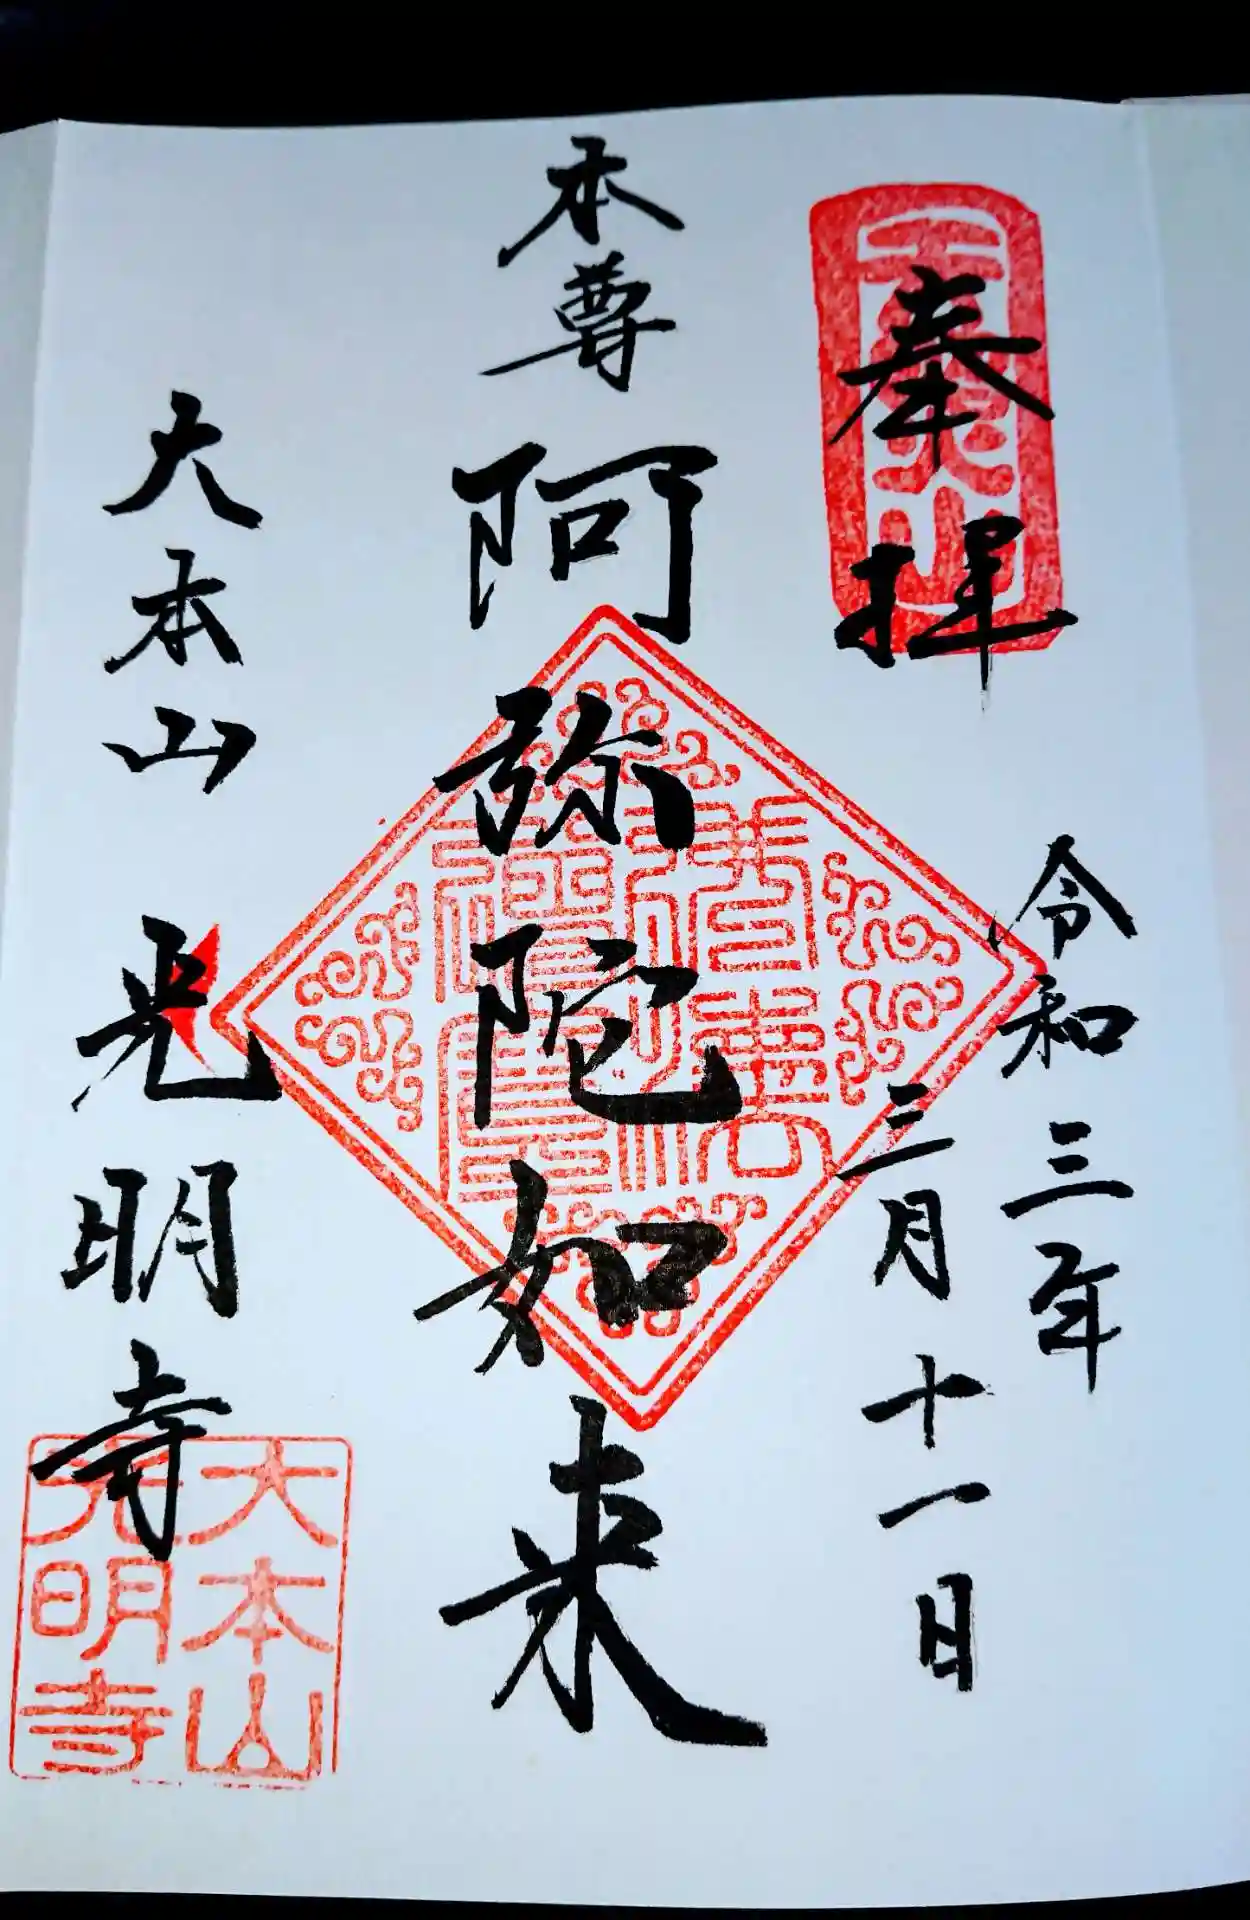 奉拝
令和三年
三月十一日
本尊 阿弥陀如来
大本山 光明寺
大本山
光明寺